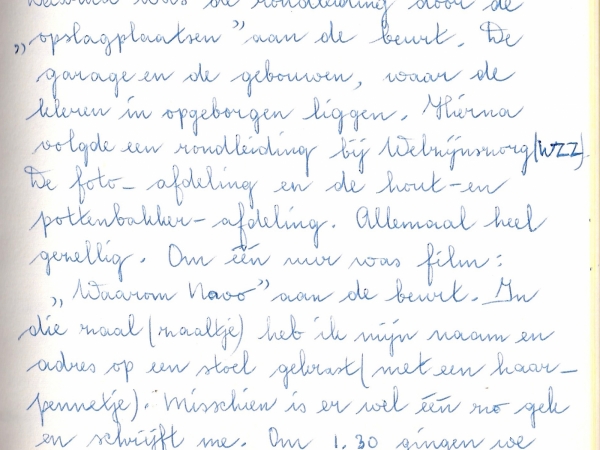 was de rondleiding door de
„opslagplaatsen" aan de beurt. De
garage en de gebouwen, waar de
kleren in opgeborgen liggen. Hierna
volgde een rondleiding bij Welzijnszorg (WZZ).
De foto-afdeling en de hout-en
pottenbakker-afdeling. Allemaal heel
gezellig. Om één uur was film:
„Waarom Navo" aan de beurt. In
die zaal (zaaltje) heb ik mijn naam en
adres op een stoel gekrast (met een haar-
pennetje). Misschien is er wel één zo gek
en schrijft me. Om 1.30 gingen we